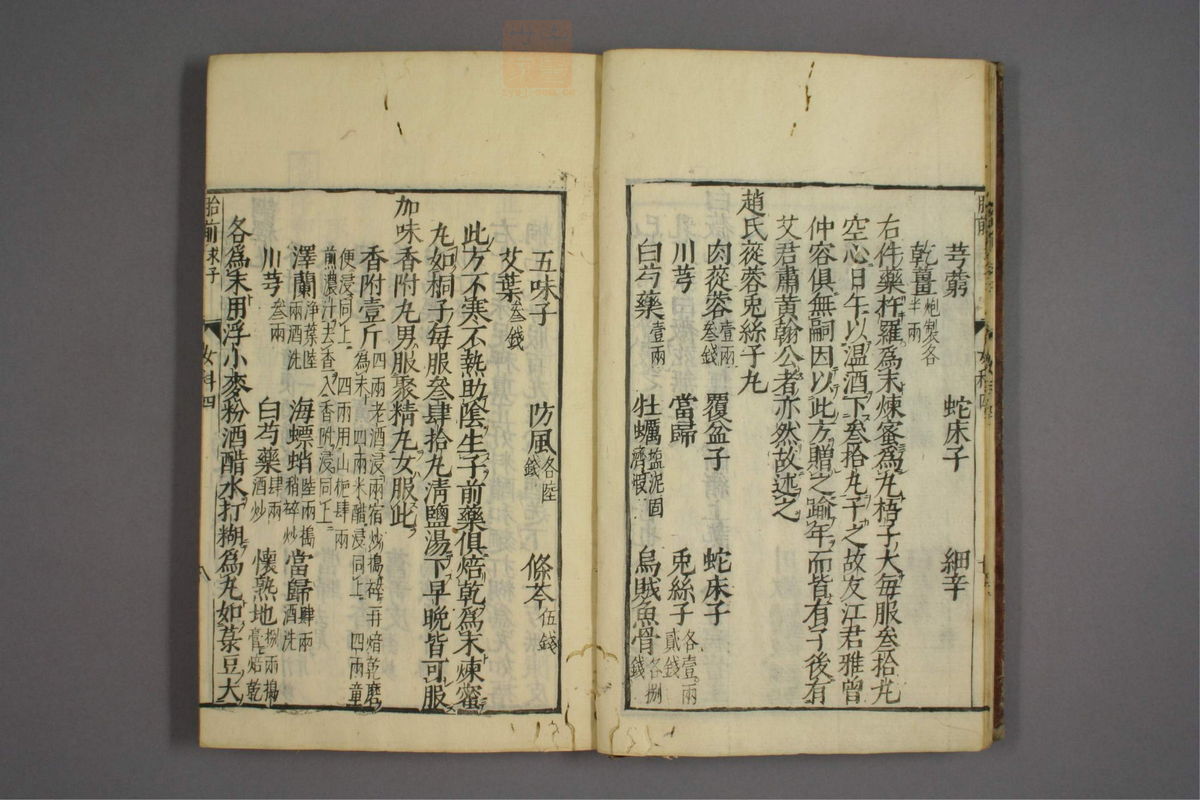 芎藭 蛇床子 細辛
乾薑炮製各半兩
右件藥杵羅為末煉蜜為丸梧子大每服叁拾丸
空心日午以温酒下叁拾丸予之故友江君雅曾
仲容俱無嗣因以此方贈之踰年而皆有子後有
艾君肅黄翰公者亦然故述之
趙氏蓯蓉兎絲子丸
肉蓯蓉壹兩叁錢 覆盆子 蛇床子
川芎 當歸 兎絲子各壹兩貳錢
白芍藥壹兩 牡蠣鹽泥固濟煅 烏賊魚骨各捌錢
五味子 防風各陸錢 條芩伍錢
艾葉叁錢
此方不寒不熱助陰生子前藥俱焙乾為末煉蜜
丸如桐子每服叁肆拾丸淸鹽湯下早晚皆可服
加味香附丸男服聚精丸女服此
香附壹斤四兩老酒浸兩宿炒搗碎再焙乾磨為末 四兩米醋浸同上 四兩童
便浸同上 四兩用山梔肆兩煎濃汁去香入香附浸同上
澤蘭淨葉陸兩酒洗 海螵蛸陸兩搗稍碎炒 當歸肆兩酒洗
川芎叁兩 白芍藥肆兩酒炒 懐熟地捌兩搗膏焙乾
各為末用浮小麥粉酒醋水打糊為丸如菉豆大
胎前求子 女科四